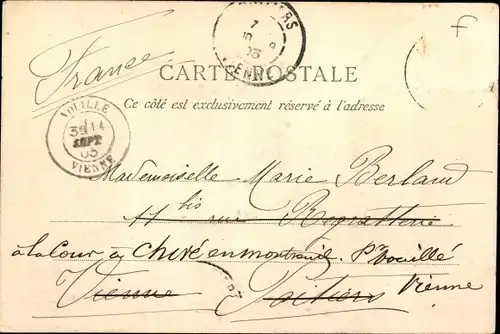 France
POITIERS
VIENNE
03
f
CARTE POSTALE
Ce côté est exclusivement réservé à l'adresse
VOUILLE
SEPT
03
VIENNE
Mademoiselle Marie Berland
11 bis rue Regratterie
à la Cour de Chiré en montreuil. Pr Vouillé
Vienne Poitiers Vienne